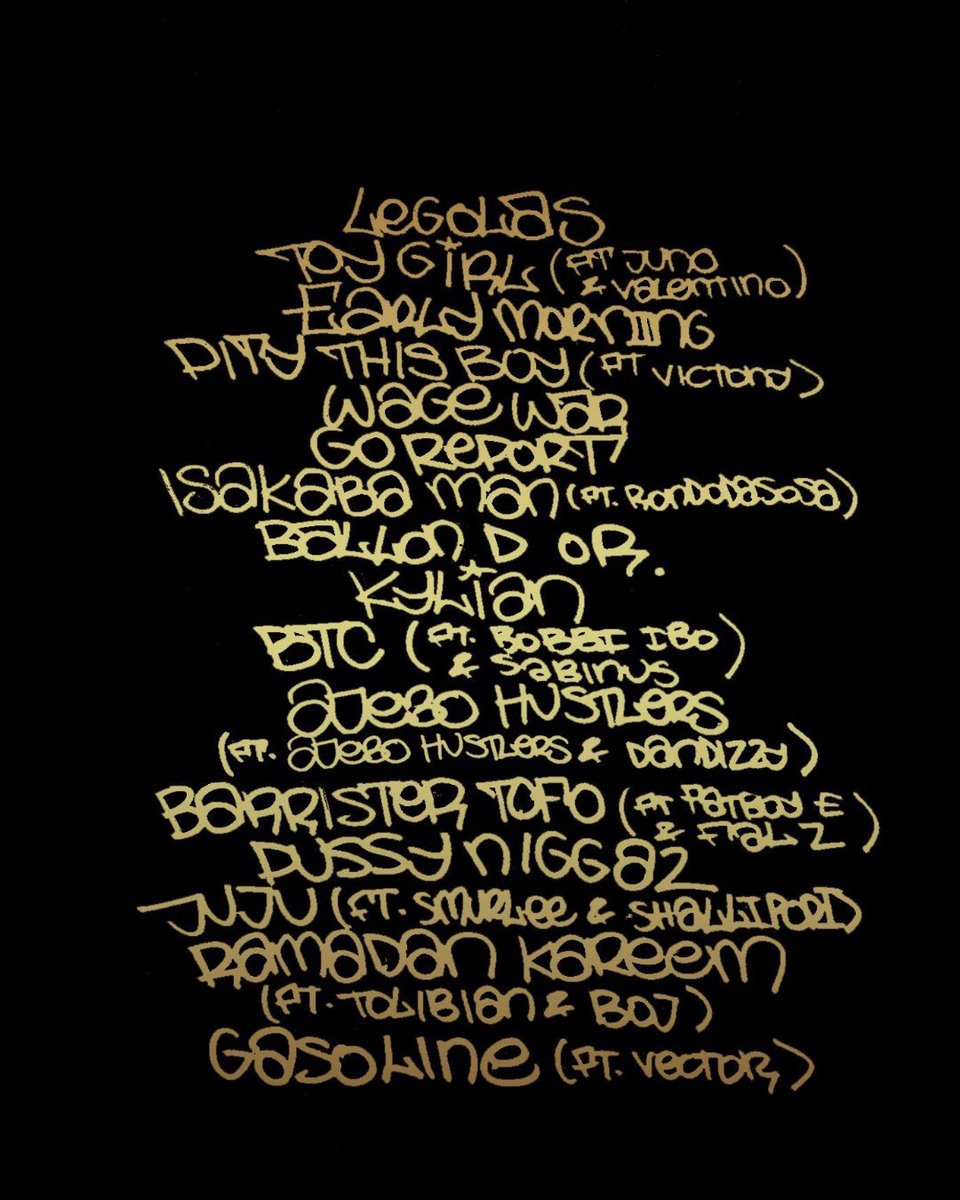 LeGoLaS
TOY GiRL (FT JUNO
& VaLeNTINO)
EaRLY MORNIING
PITY THIS BOY (FT VICTONY)
WaGe WaR
GO RePORT
ISaKaBa MaN (FT. RONDODaSOSa)
BaLLON D OR.
KYLiaN
BTC (FT. BOBBI IBO
& SaBINUS
)
aJeBO HUSTLeRS
(FT. aJeBO HUSTLeRS & DaNDIZZY)
BaRRISTeR TOFO (FT PaTBOY E
& FaLZ)
PUSSY NIGGaZ
JUJU (FT. SMURLee & SHaLLIPOPI)
RaMaDaN KaReeM
(FT. TOLIBIaN & BOJ)
GaSOLINe (FT. VeCTOR)